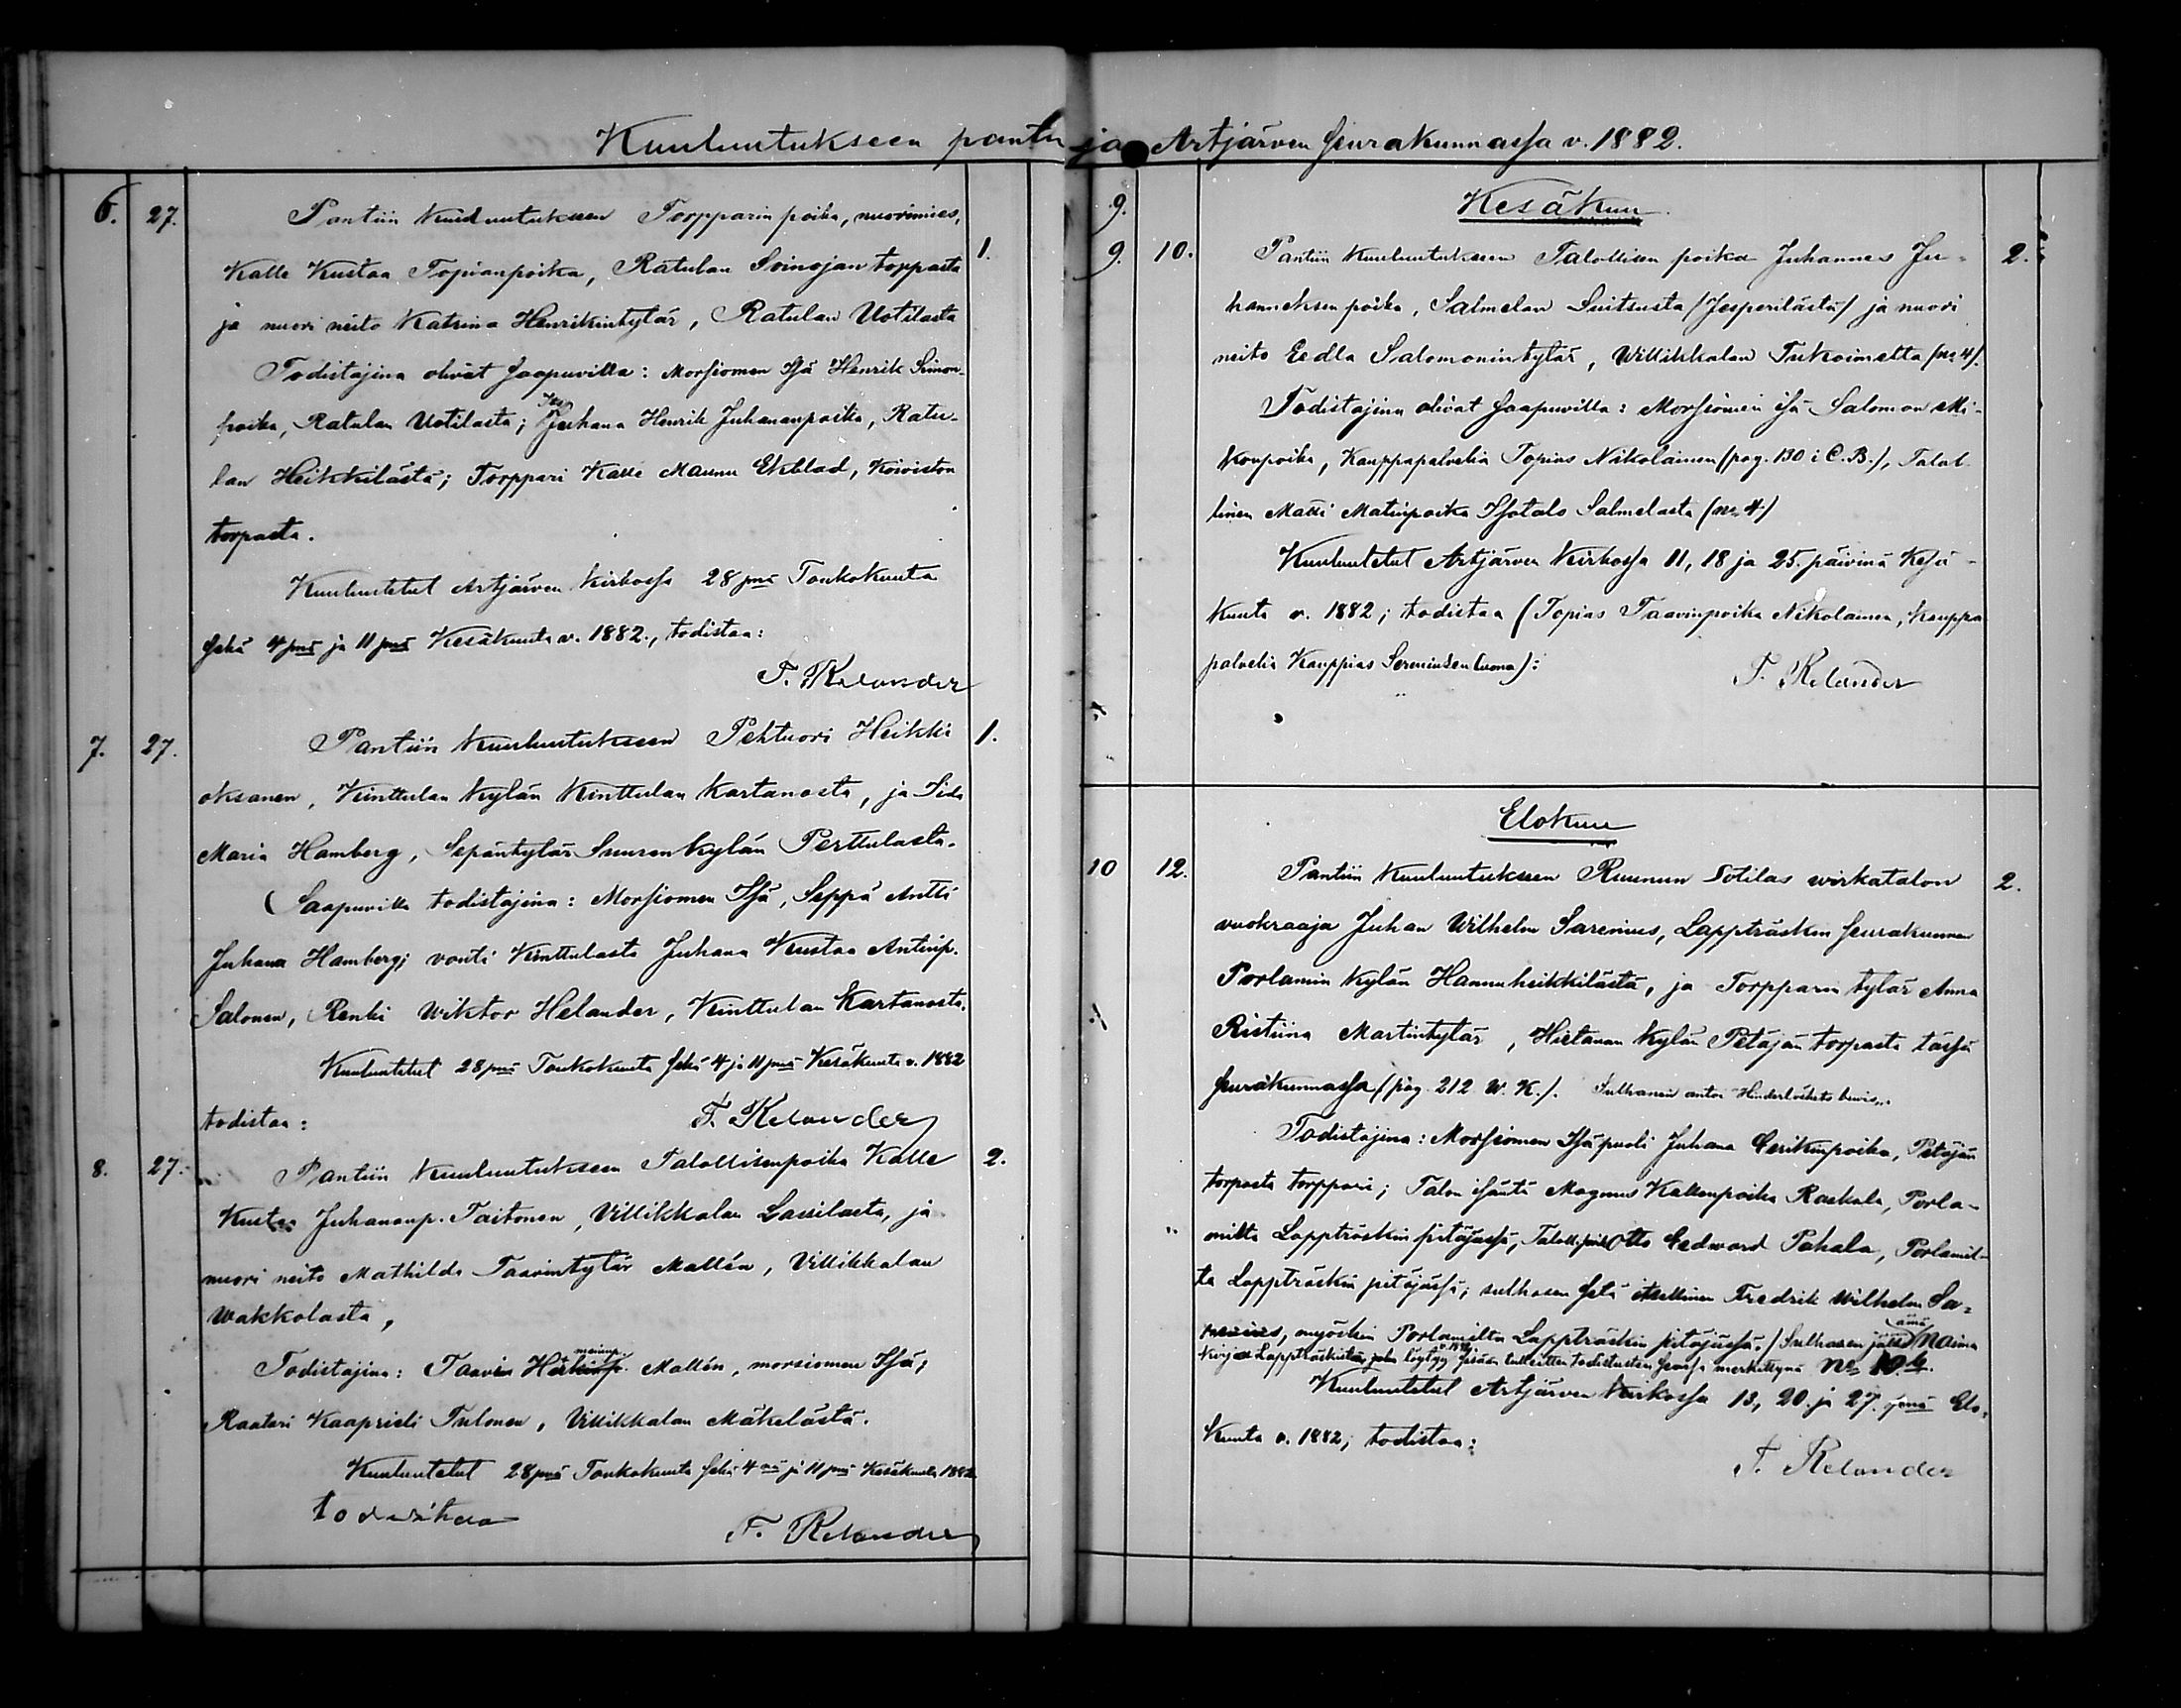 Kuulutukseen pantuja Artjärven seurakunnassa v. 1882.
6. 27. Pantiin kuulutukseen Torpparin poika, nuorimies, 1.
Kalle Kustaa Topiaanpoika, Ratulan Soinojan torpasta
ja nuori neito Katrina Henrikintytär, Ratulan Uotilasta
Todistajina olivat saapuvilla: Morsiomen Isä Henrik Simon-
poika, Ratulan Uotilasta; Juhana Henrik Juhananpoika, Ratu-
lan Heikkilästä; Torppari Kalle Maunu Ekblad, Koiviston
torpasta.
Kuulutetut Artjärven kirkossa 28 pnä Toukokuuta
sekä 4 pnä ja 11 pnä Kesäkuuta v. 1882., todistaa:
F. Relander
7. 27. Pantiin kuulutukseen Pehtuori Heikki 1.
Oksanen, Kinttulan kylän Kinttulan Kartanosta, ja Iida
Maria Hamberg, Sepäntytär Suurenkylän Perttulasta.
Saapuvilla todistajina: Morsiomen Isä, Seppä Antti
Juhana Hamberg; vouti Kinttulasta Juhana Kustaa Antinp.
Salonen, Renki Wiktor Helander, Kinttulan Kartanosta.
Kuulutetut 28 pnä Toukokuuta sekä 4 ja 11 pnä Kesäkuuta v. 1882
todistaa:
F. Relander
8. 27. Pantiin kuulutukseen Talollisenpoika Kalle 2.
Kustaa Juhananp. Taitonen, Villikkalan Lassilasta, ja
nuori neito Mathilda Taavintytär Mallén, Villikkalan
Wakkolasta,
Todistajina: Taavi Mallén, morsiomen Isä;
Raatari Kaaprieli Tulonen, Villikkalan Mäkelästä.
Kuulutetut 28 pnä Toukokuuta sekä 4 nä ja 11 pnä Kesäkuuta 1882
todistaa
F. Relander
9. Kesäkuu
9. 10. Pantiin kuulutukseen Talollisen poika Juhannes Ju- 2.
hanneksen poika, Salmelan Suitsusta (Jesperilästä) ja nuori
neito Eedla Salomonintytär, Willikkalan Tukoimelta (no 4).
Todistajina olivat saapuvilla: Morsiomen isä Salomon Mi-
konpoika, Kauppapalvelia Topias Nikolainen (pag. 130 i C.B.), Talol-
linen Matti Matinpoika Isotalo Salmelasta (no 4)
Kuulutetut Artjärven Kirkossa 11, 18 ja 25. päivinä Kesä-
kuuta v. 1882; todistaa (Topias Taavinpoika Nikolainen, kauppa
palvelia Kauppias luona):
F. Relander
Elokuu
10 12. Pantiin kuulutukseen Ruunun Sotilas wirkatalon 2.
vuokraaja Juhan Wilhelm Sarenius, Lappträskin seurakunnan
Porlamin kylän Hannuheikkilästä, ja Torpparin tytär Anna
Ristiina Martintytär, Hietanan kylän Petäjän torpasta tässä
seurakunnassa (pag. 212 W. K.). Sulhanen antoi Hinderlöshets bevis.
Todistajina: Morsiomen Isäpuoli Juhana Eerikinpoika, Petäjän
torpasta torppari; Talon isäntä Magnus Kallenpoika Raskala, Porla-
milta Lappträskin pitäjässä, Talollisen poika Otto Eedward Pahala, Porlamil-
ta Lappträskin pitäjässä; sulhasen setä itsellinen Fredrik Wilhelm Sa-
renius, myöskin Porlamilta Lappträskin pitäjässä.
Kuulutetut Artjärven Kirkossa 13, 20. ja 27. pnä Elo-
kuuta v. 1882; todistaa:
F. Relander